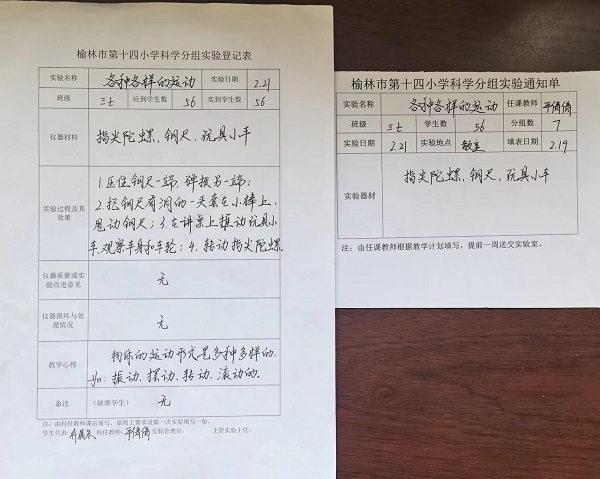 榆林市第十四小学科学分组实验登记表
实验名称 各种各样的运动 实验日期 2.21
班级 三七 应到学生数 56 实到学生数 56
仪器材料 指尖陀螺、钢尺、玩具小车
实验过程及其效果
1.压住钢尺一端,弹拨另一端;
2.把钢尺有洞的一头套在小棒上,
甩动钢尺;3.在讲桌上推动玩具小
车,观察车身和车轮;4.转动指尖陀螺.
仪器质量或实验改进意见 无
仪器损坏与处理情况 无
教学心得
物体的运动形式是多种多样的.
如:振动、摆动、转动、滚动的.
备注 (缺席学生) 无
注:由科任教师课后填写、原则上要求没做一次实验填写一份。
学生代表: 科任教师: 实验管理员: 主管实验主任:
榆林市第十四小学科学分组实验通知单
实验名称 各种各样的运动 任课教师
班级 三七 学生数 56 分组数 7
实验日期 2.21 实验地点 教室 填表日期 2.19
实验器材 指尖陀螺、钢尺、玩具小车
注:由任课教师根据教学计划填写,提前一周送交实验室。